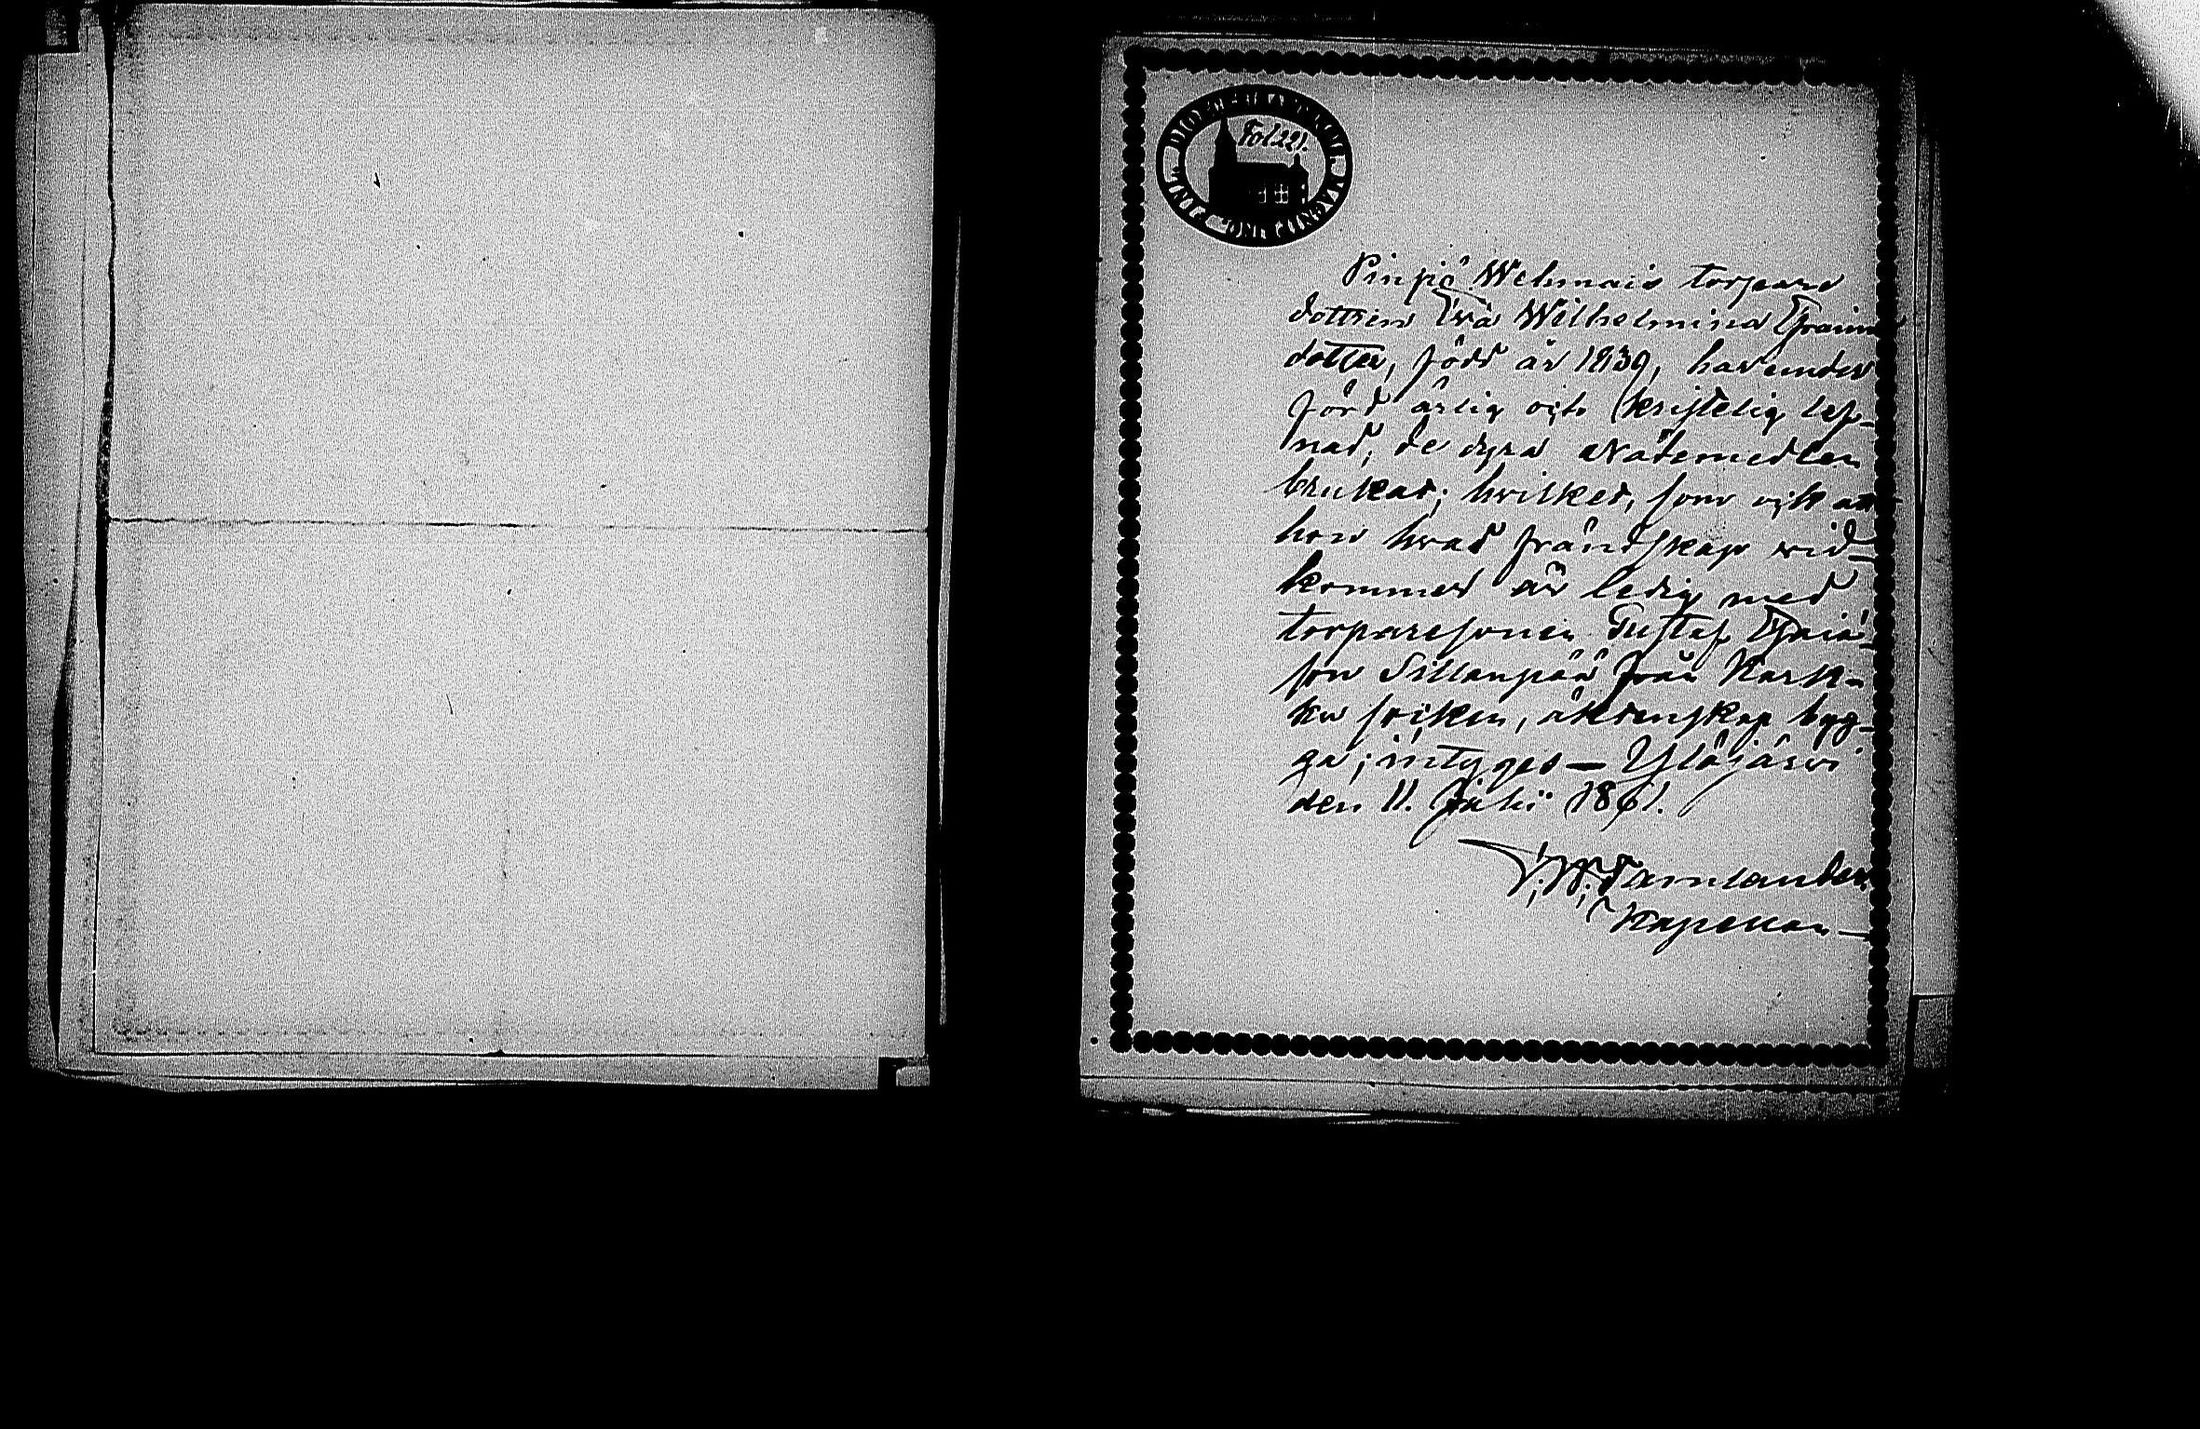 Fol 221.
Pinsiö Wehmais torpare
dottren Eva Wilhelmina
dotter, född år 1839, har under
förd ärlig och kristelig lef-
nad, de dyra nådemedlen
brukat; hvilket, som ock att
hon hvad frändskap wid-
kommer är ledig med
torparesonen Gustaf
son Sillanpää från Kark-
ku socken, äktenskap byg-
ga; intygas — Ylöjärvi
den 11. Juli 1861.
Kapellan